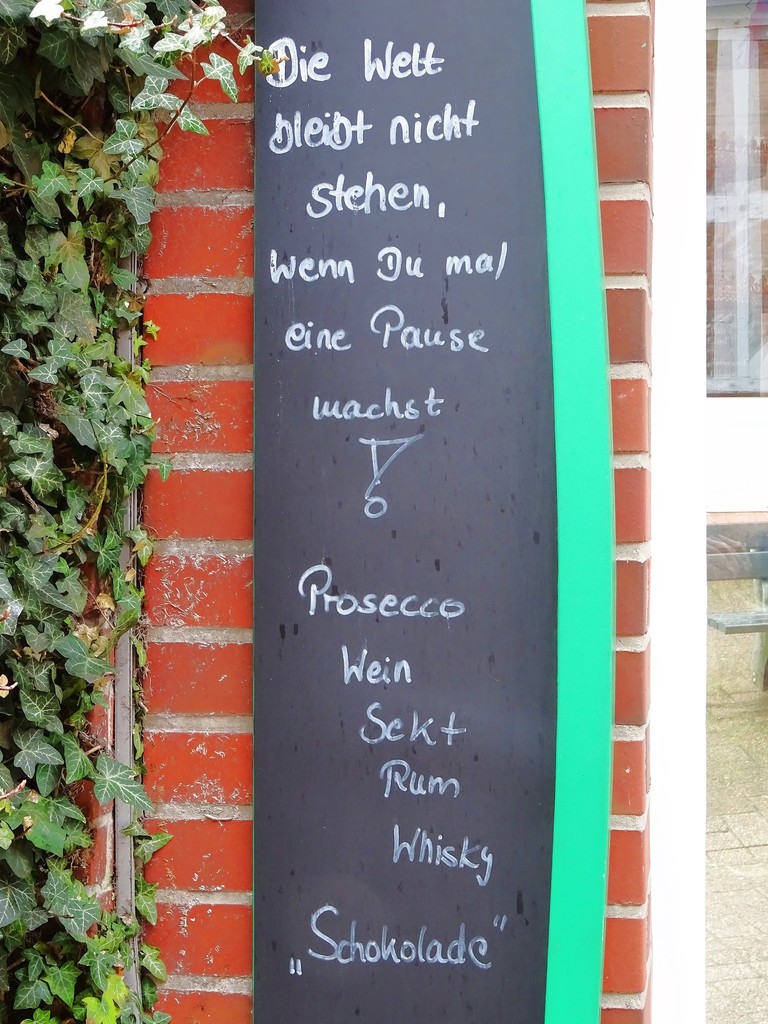 Die Welt
bleibt nicht
stehen,
wenn Du mal
eine Pause
machst
Prosecco
Wein
Sekt
Rum
Whisky
„Schokolade"